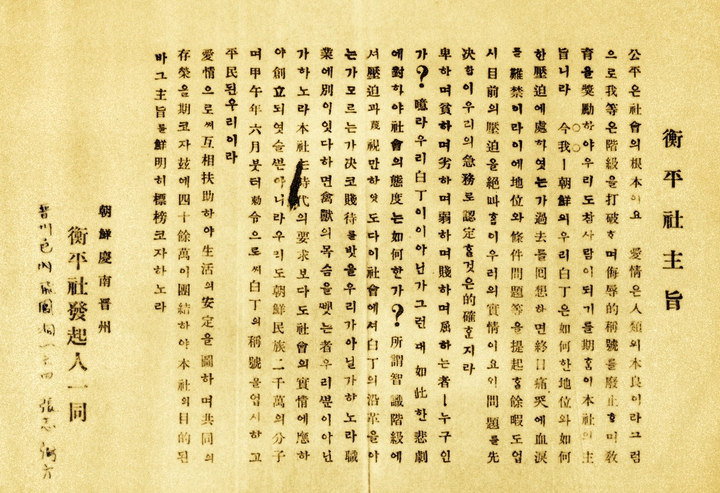 衡平社主旨
公平은社會의根本이요 愛情은人類의本良이라그럼
으로我等은階級을打破하며侮辱的稱號를廢止하며敎
育을奬勵하야우리도참사람이되기를期홈이本社의主
旨니라 今我ㅣ朝鮮의우리白丁은如何한地位와如何
한壓迫에處하엿는가過去를回想하면終日痛哭에血淚
를難禁이라이에地位와條件問題等을提起홀餘暇도업
시目前의壓迫을絶叫홈이우리의實情이요이問題를先
決함이우리의急務로認定홀것은的確호지라
卑하며貧하며劣하며弱하며賤하며屈하는者ㅣ누구인
가?噫라우리白丁이이아닌가그런대如此한悲劇
에對하야社會의態度는如何한가?所謂智識階級에
서壓迫과蔑視만하엿도다이社會에셔白丁의沿革을아
는가모르는가決코賤待를밧을우리가아닐가하노라職
業에別이잇다하면禽獸의목숨을뺏는者우리뿐이아닌
가하노라本社는時代의要求보다도社會의實情에應하
야創立되엿슬뿐아니라우리도朝鮮民族二千萬의分子
며甲午年六月붓터勅令으로써白丁의稱號을업시하고
平民된우리이라
愛情으로써互相扶助하야生活의安定을圖하며共同의
存榮을期코자玆에四十餘萬이團結하야本社의目的된
바그主旨를鮮明히標榜코자하노라
朝鮮慶南晋州
衡平社發起人一同
晋州邑内 張志弼方